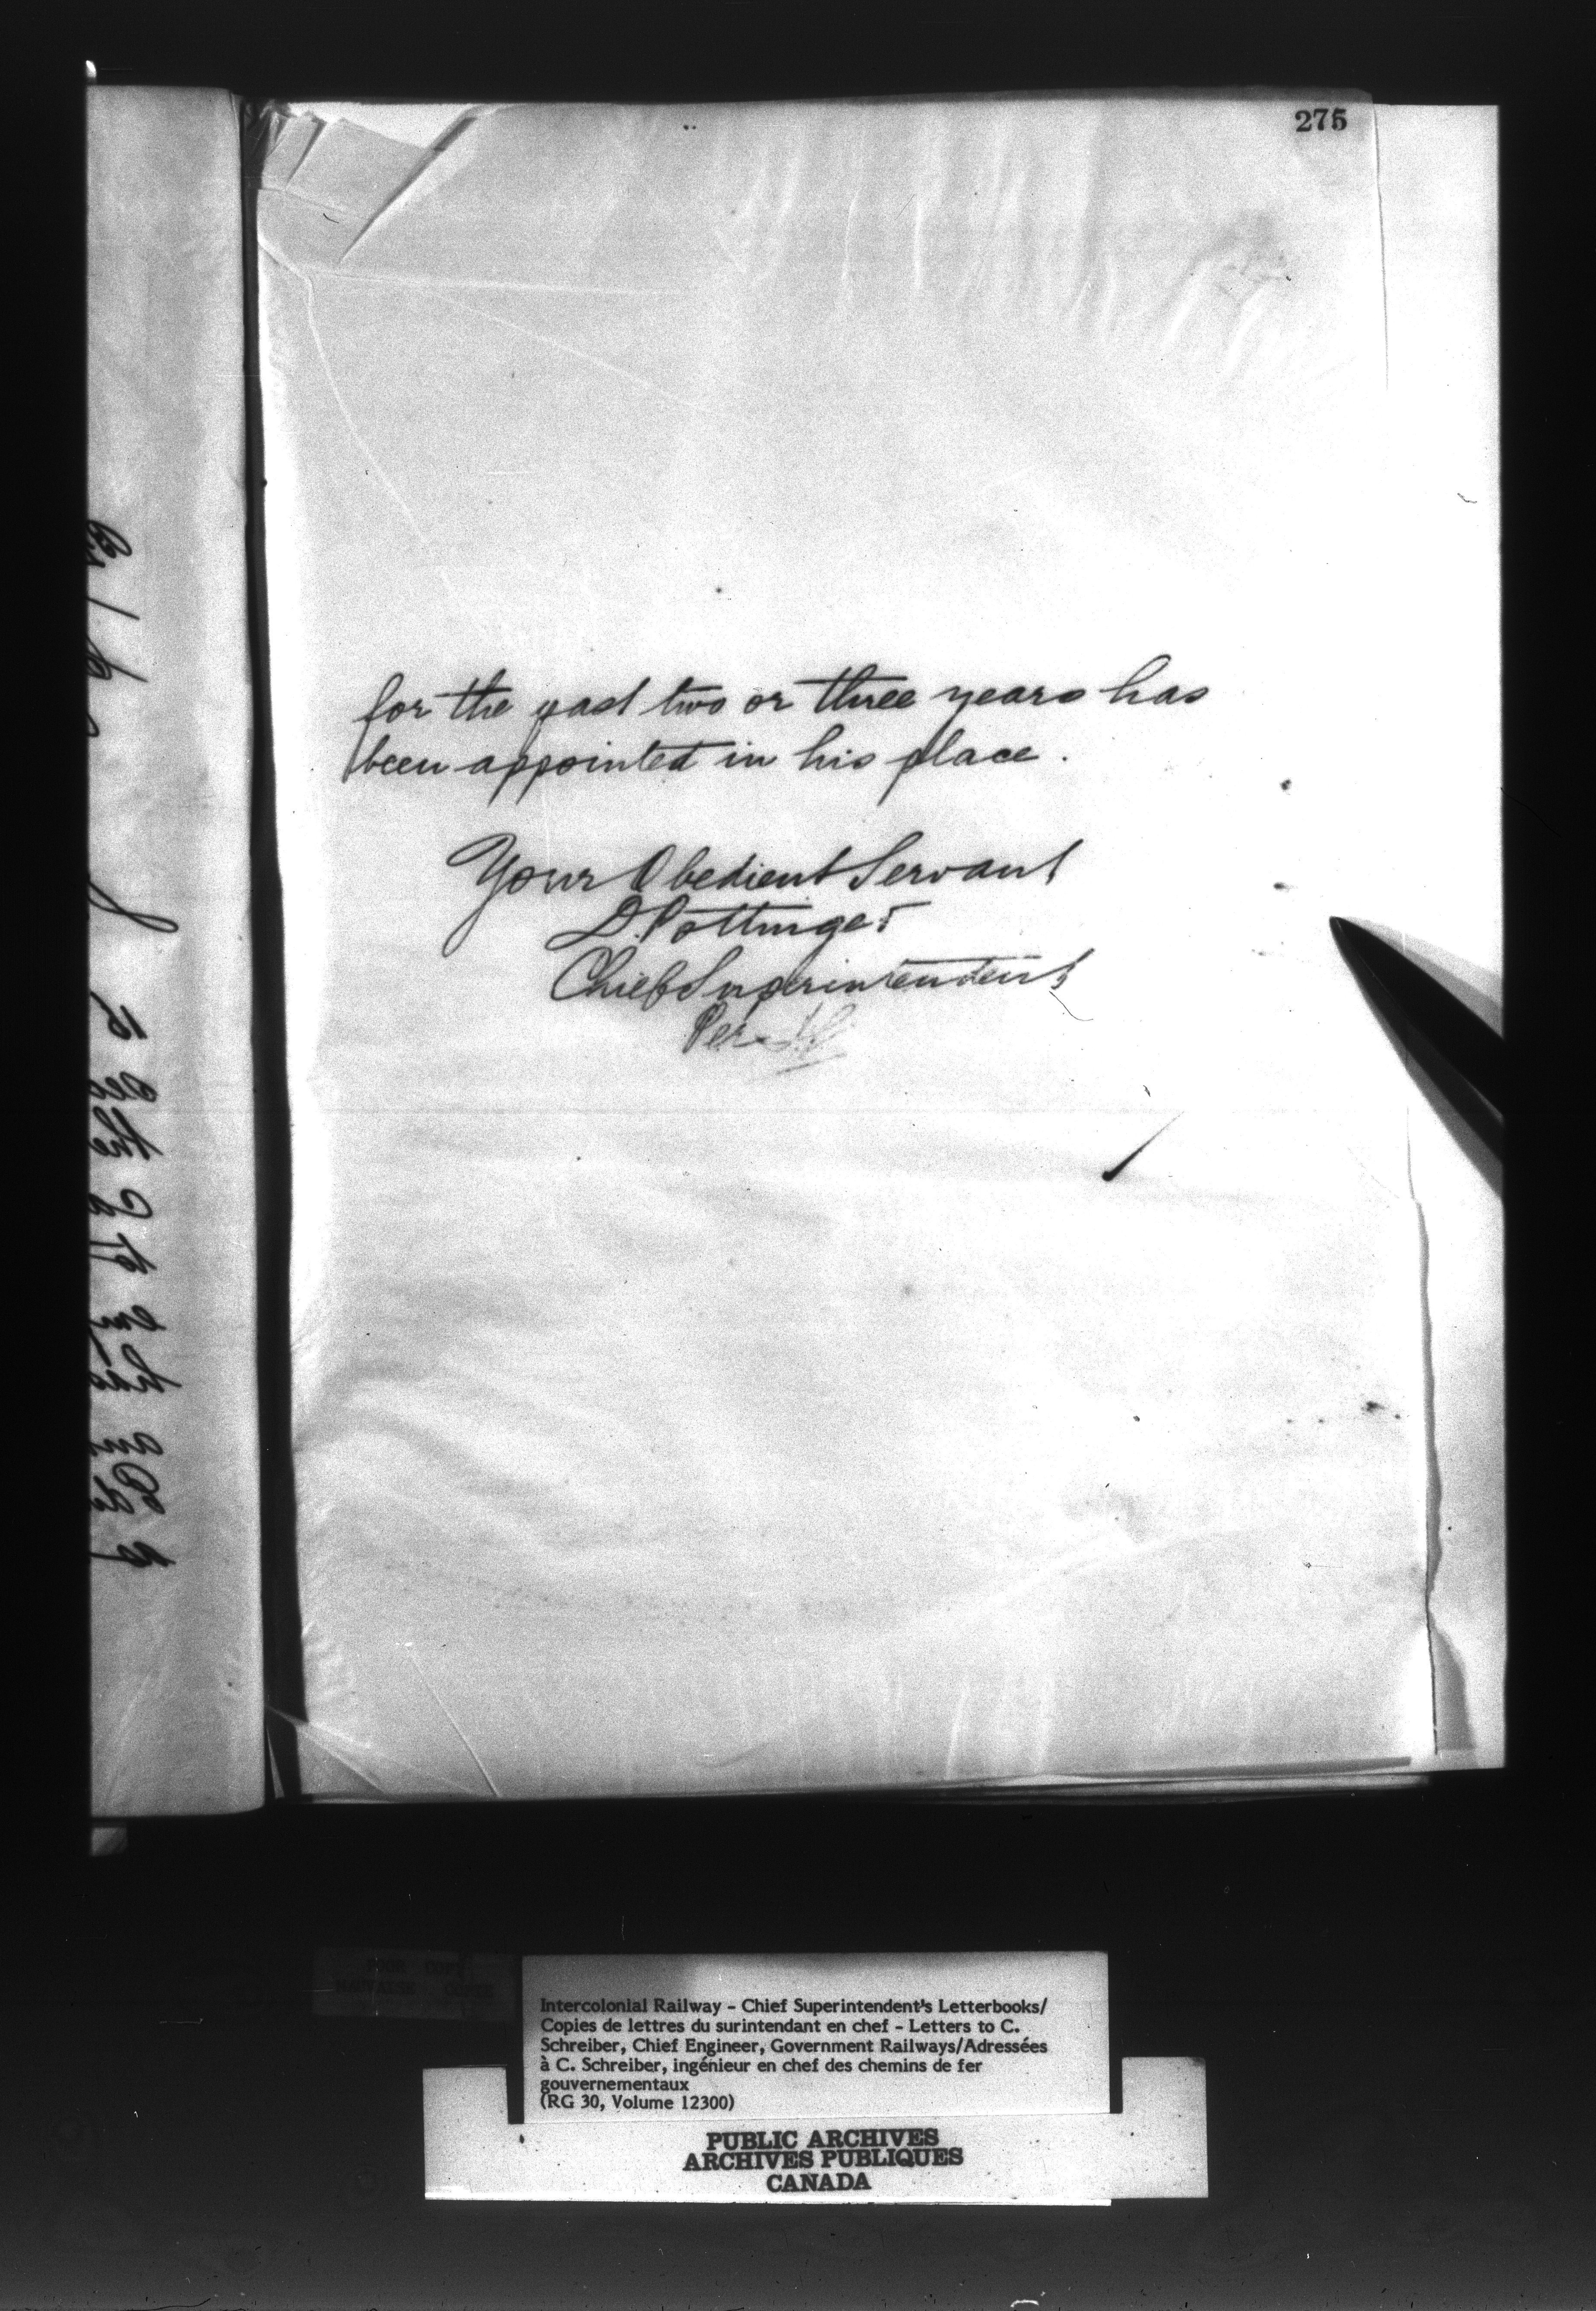 275
for the past two or three years has
been appointed in his place.
Your Obedient Servant
D. Pottinger
Chief Superintendent
Per
Intercolonial Railway - Chief Superintendent's Letterbooks/
Copies de lettres du surintendant en chef - Letters to C.
Schreiber, Chief Engineer, Government Railways/Adressées
à C. Schreiber, ingénieur en chef des chemins de fer
gouvernementaux
(RG 30, Volume 12300)
PUBLIC ARCHIVES
ARCHIVES PUBLIQUES
CANADA